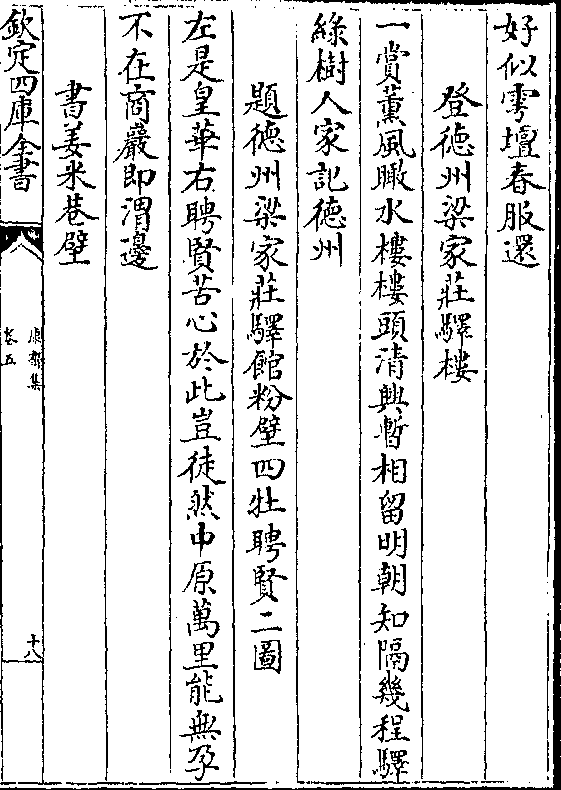 好似雩壇春服還
登德州梁家莊驛樓
一賞薰風瞰水樓樓頭清興暫相留明朝知隔幾程驛
綠樹人家記德州
題德州梁家莊驛館粉壁四牡聘賢二圖
左是皇華右聘賢苦心於此豈徒然中原萬里能無孕
不在商巖即渭邊
書姜米巷壁
欽定四庫全書
康齋集
卷五
十八